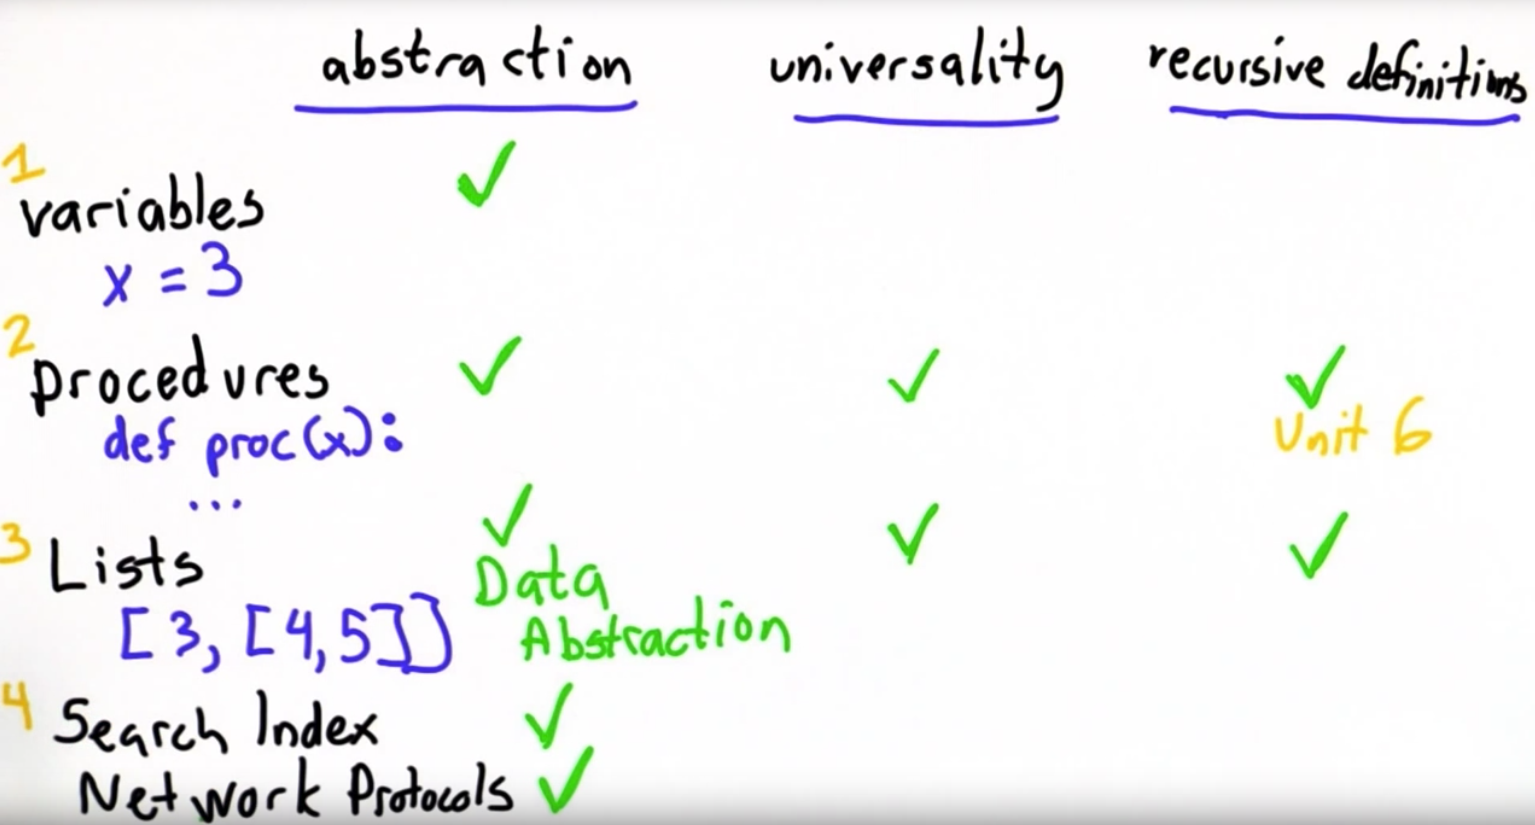 abstraction universality recursive definitions
1
variables ✓
x = 3
2
procedures ✓ ✓ ✓
def proc(x): Unit 6
...
3
Lists ✓ ✓ ✓
Data
[3, [4,5]] Abstraction
4
Search Index ✓
Network Protocols ✓